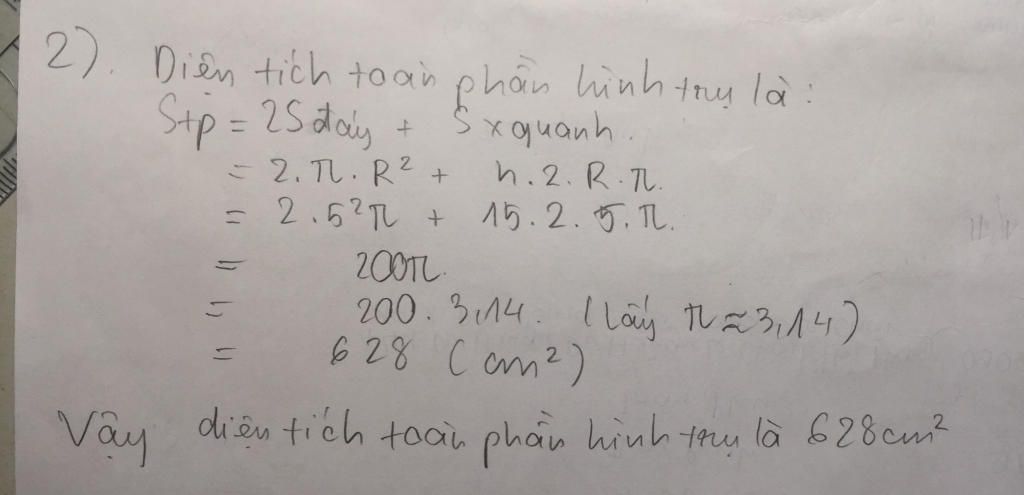 2). Diện tích toàn phần hình trụ là:
Stp = 2S đáy + S xquanh.
= 2.π.R² + h.2.R.π.
= 2.5²π + 15.2.5.π.
= 200π.
= 200.3,14. (lấy π≈3,14)
= 628 (cm²)
Vậy diện tích toàn phần hình trụ là 628cm²